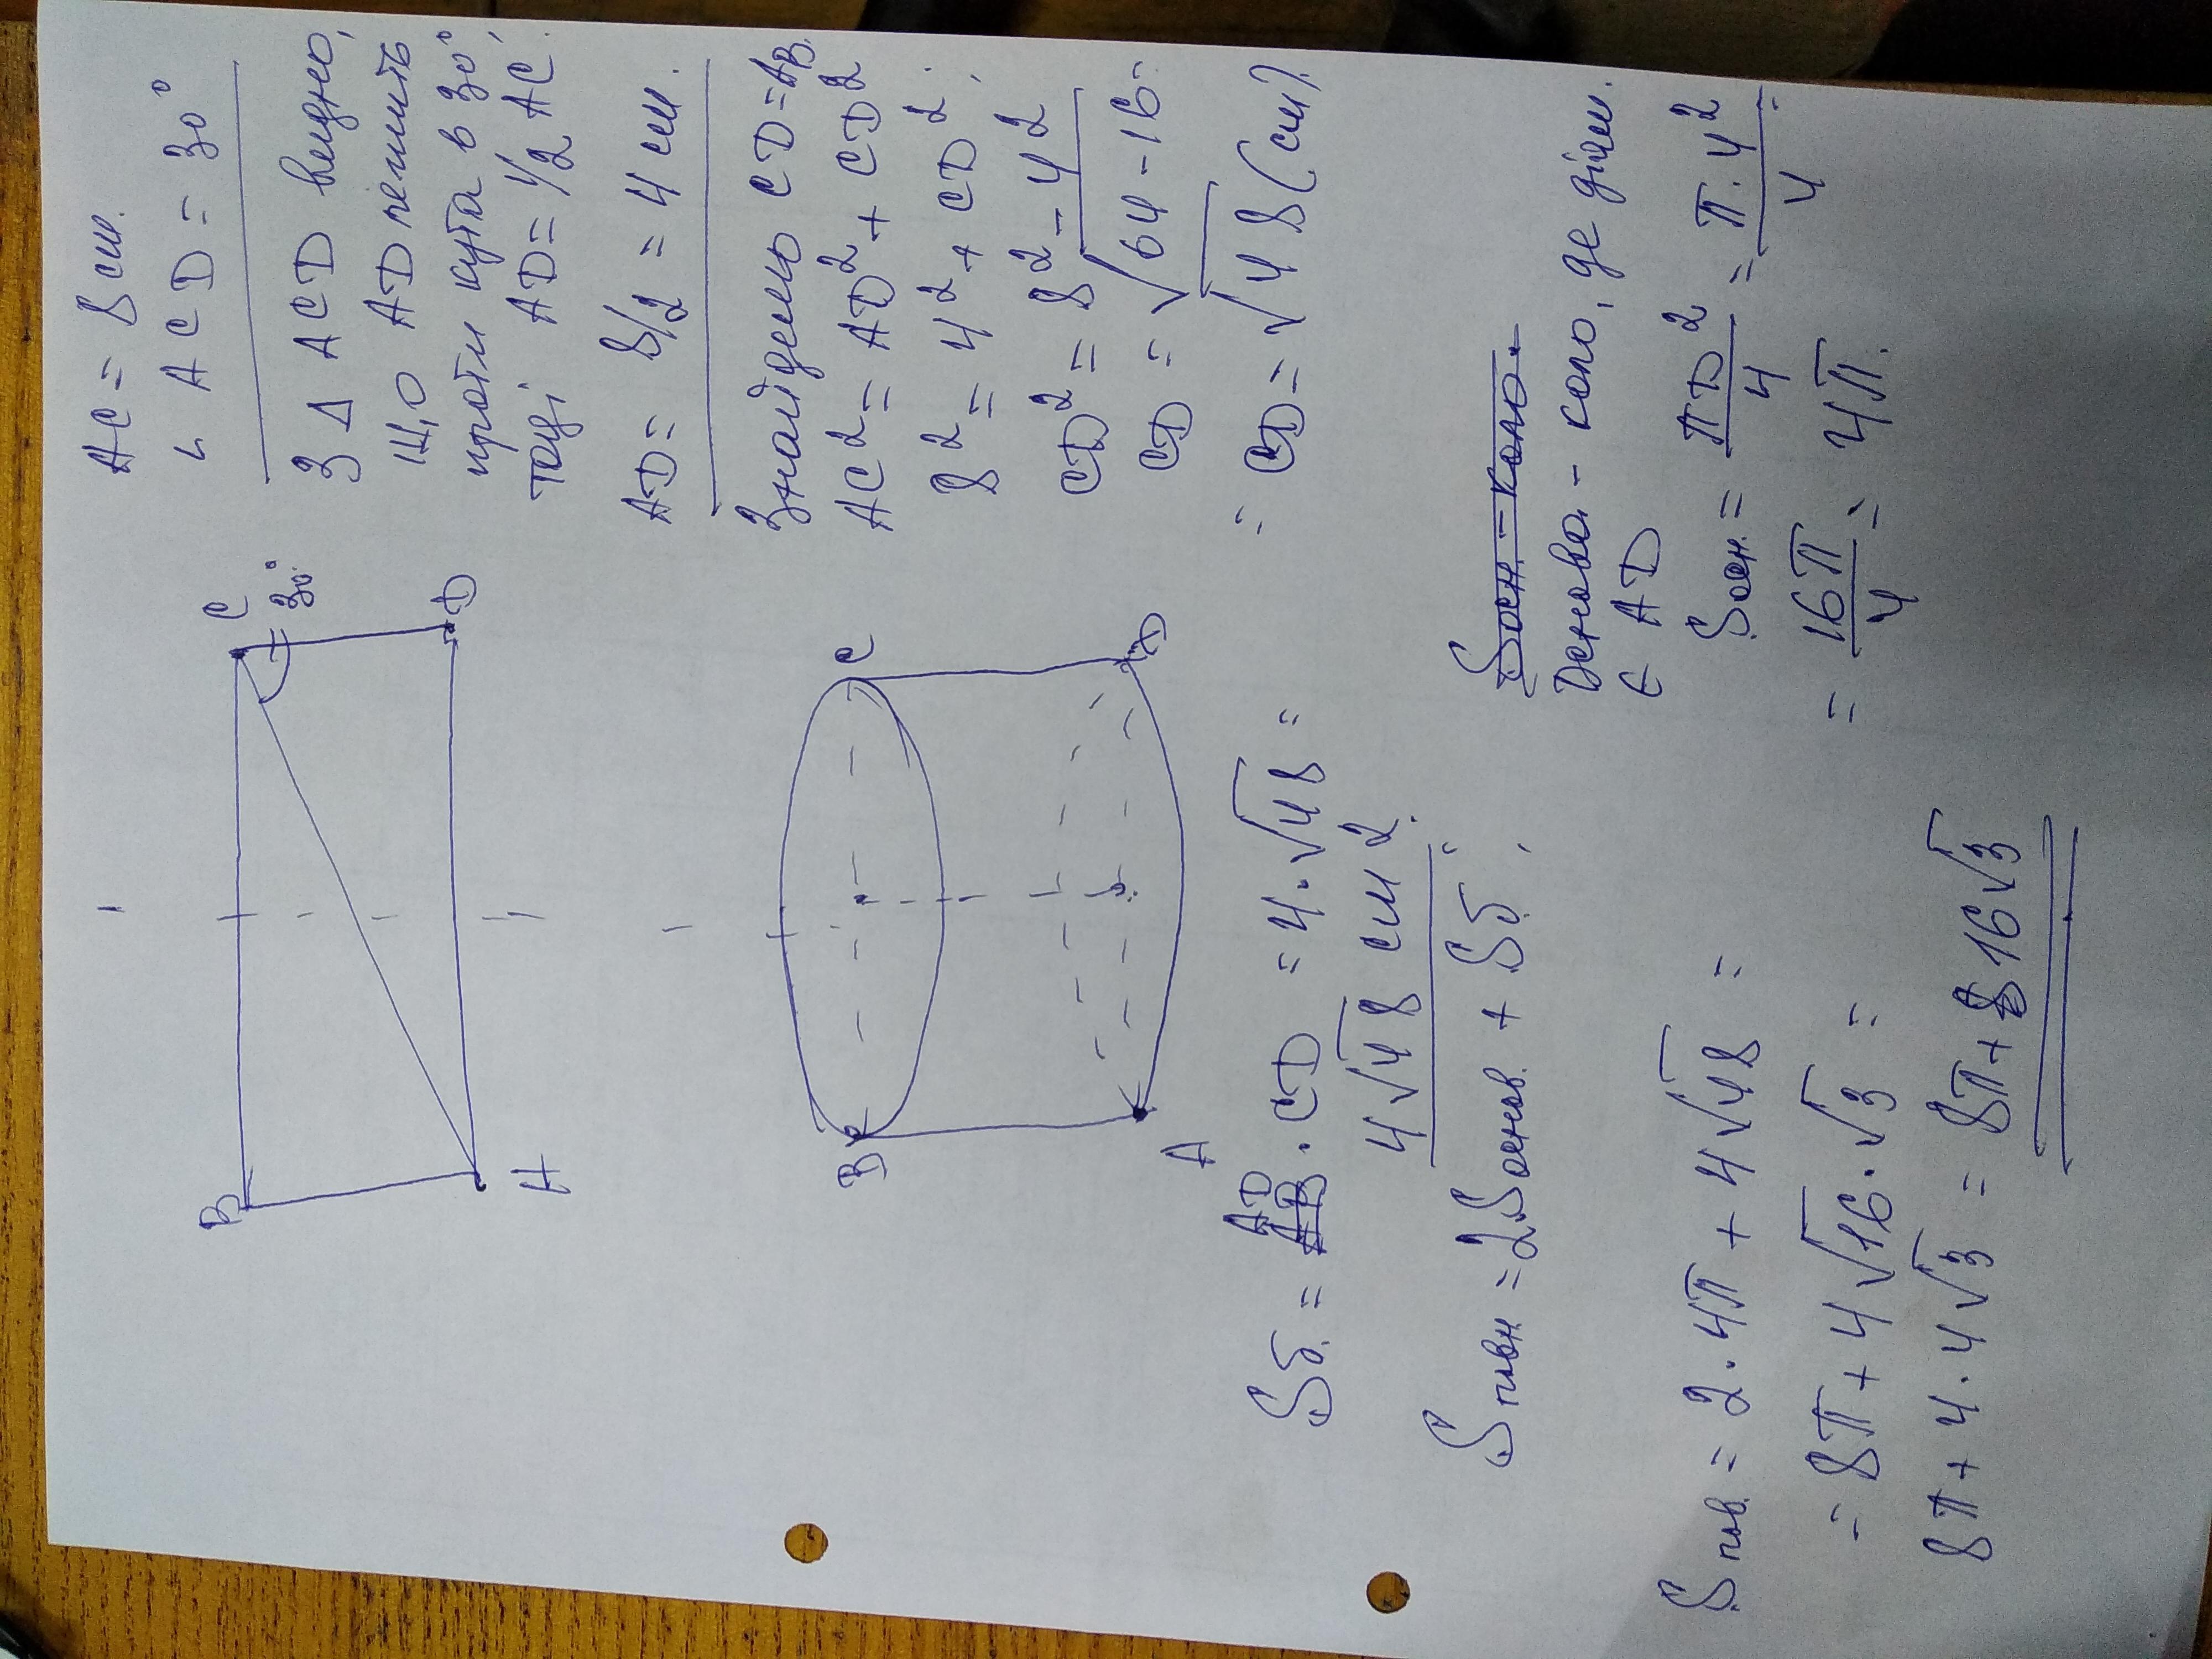 B
C
30°
А
D
AC = 8 см.
∟ ACD = 30°
З Δ ACD видно,
що AD лежить
проти кута в 30°,
тоді AD = 1/2 AC.
AD = 8/2 = 4 см.
Знайдемо CD = AB.
AC² = AD² + CD²
8² = 4² + CD²;
CD² = 8² - 4²
CD = √64-16 =
= CD = √48 (см).
B
C
A
D
Sб. = AB AD · CD = 4 · √48 =
4√48 см².
Sповн = 2Sоснов. + Sб.
Sосн. - коло.
Основа - коло, де діам.
є AD
Sосн. = πD²/4 = π·4²/4
= 16π/4 = 4π.
Sпов. = 2 · 4π + 4√48 =
= 8π + 4√16 · √3 =
8π + 4 · 4√3 = 8π + 16√3